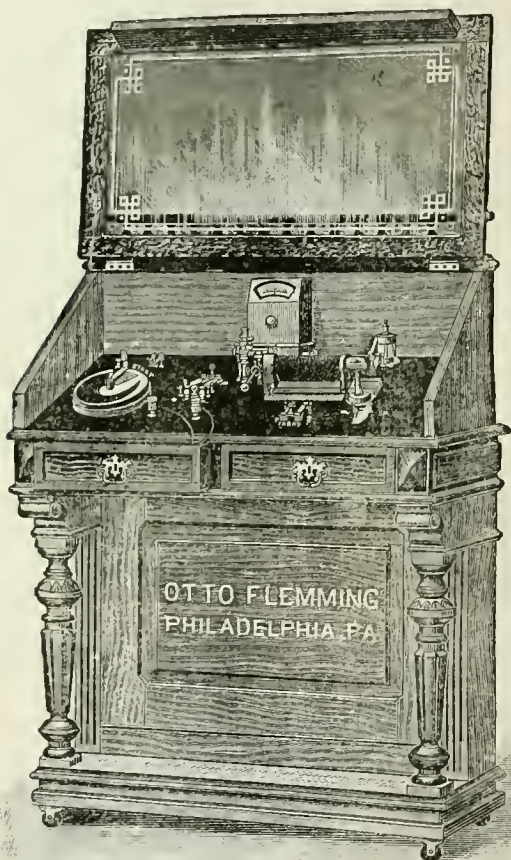 OTTO FLEMMING
PHILADELPHIA, PA